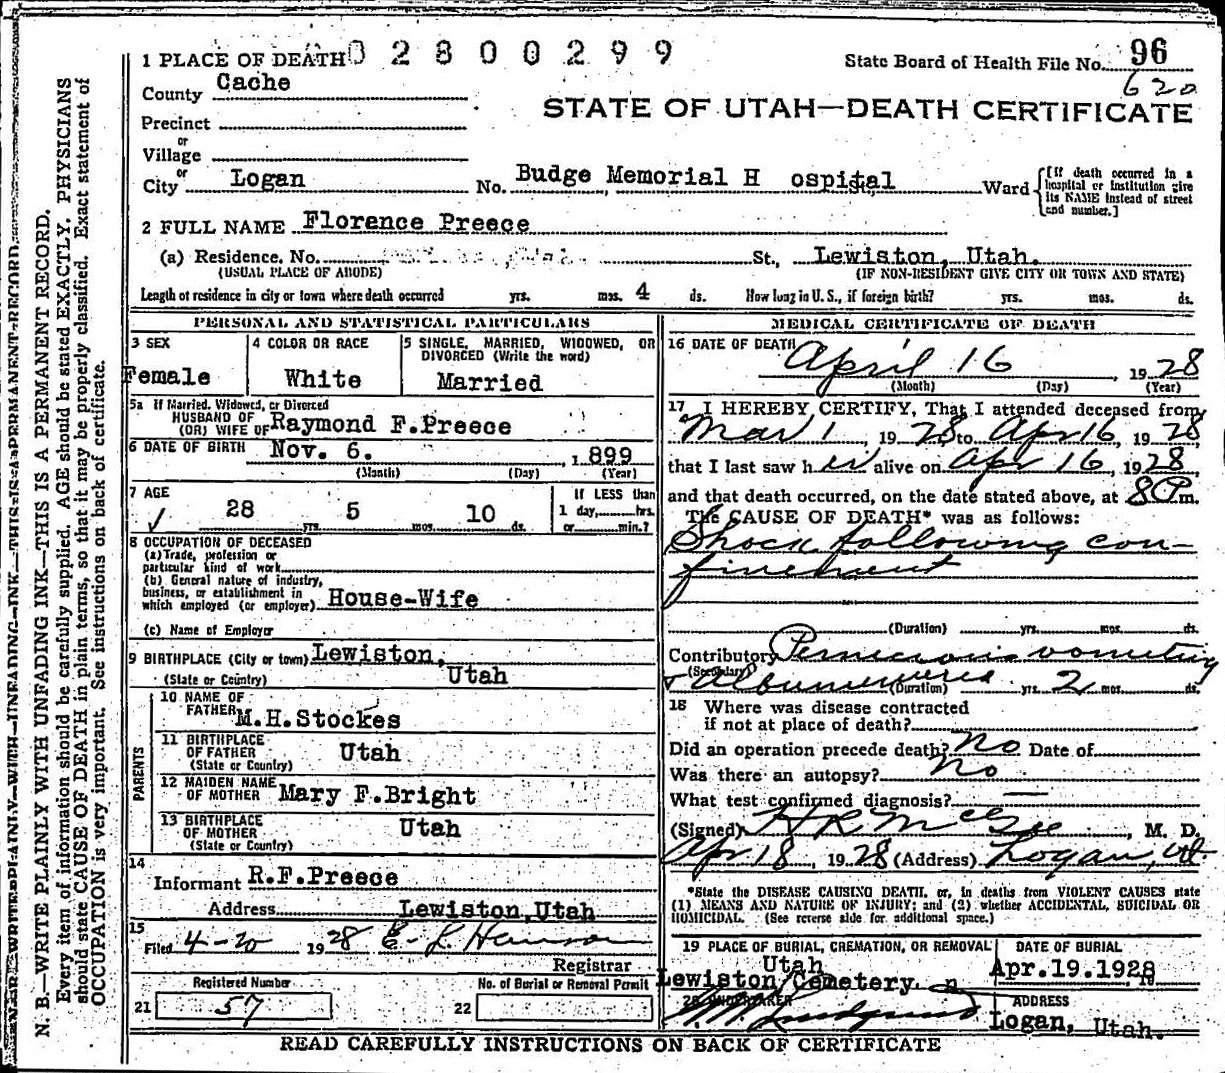 1 PLACE OF DEATH 02800299
State Board of Health File No. 96
620
County Cache
STATE OF UTAH—DEATH CERTIFICATE
Precinct
or
Village
or
City Logan No. Budge Memorial H ospital Ward
[If death occurred in a
hospital or institution give
its NAME instead of street
and number.]
2 FULL NAME Florence Preece
(a) Residence. No. St., Lewiston, Utah.
(USUAL PLACE OF ABODE) (IF NON-RESIDENT GIVE CITY OR TOWN AND STATE)
Length of residence in city or town where death occurred yrs. mos. 4 ds. How long in U. S., if foreign birth? yrs. mos. ds.
PERSONAL AND STATISTICAL PARTICULARS
3 SEX
Female
4 COLOR OR RACE
White
5 SINGLE, MARRIED, WIDOWED, OR
DIVORCED (Write the word)
Married
5a If Married, Widowed, or Divorced
HUSBAND OF
(OR) WIFE OF Raymond F.Preece
6 DATE OF BIRTH Nov. 6. , 1899
(Month) (Day) (Year)
7 AGE
28 yrs. 5 mos. 10 ds.
If LESS than
1 day, hrs.
or min.?
8 OCCUPATION OF DECEASED
(a) Trade, profession or
particular kind of work
(b) General nature of industry,
business, or establishment in
which employed (or employer) House-Wife
(c) Name of Employer
9 BIRTHPLACE (City or town) Lewiston,
(State or Country) Utah
PARENTS
10 NAME OF
FATHER M.H.Stockes
11 BIRTHPLACE
OF FATHER Utah
(State or Country)
12 MAIDEN NAME
OF MOTHER Mary F.Bright
13 BIRTHPLACE
OF MOTHER Utah
(State or Country)
14
Informant R.F.Preece
Address Lewiston,Utah
15
Filed 4-20 1928
Registrar
Registered Number
21 57
No. of Burial or Removal Permit
22
MEDICAL CERTIFICATE OF DEATH
16 DATE OF DEATH
April 16, 1928
(Month) (Day) (Year)
17 I HEREBY CERTIFY, That I attended deceased from
Mar 1, 1928, to Apr 16, 1928,
that I last saw her alive on Apr 16, 1928,
and that death occurred, on the date stated above, at 8 P m.
The CAUSE OF DEATH* was as follows:
Shock following con-
finement
(Duration) yrs. mos. ds.
Contributory Pernicious vomiting
(Secondary)
(Duration) yrs. 2 mos. ds.
18 Where was disease contracted
if not at place of death?
Did an operation precede death? No Date of
Was there an autopsy? No
What test confirmed diagnosis? —
(Signed) H R McGee, M. D.
Apr 18, 1928 (Address) Logan, Ut.
*State the DISEASE CAUSING DEATH, or, in deaths from VIOLENT CAUSES state
(1) MEANS AND NATURE OF INJURY; and (2) whether ACCIDENTAL, SUICIDAL OR
HOMICIDAL. (See reverse side for additional space.)
19 PLACE OF BURIAL, CREMATION, OR REMOVAL
Utah
Lewiston Cemetery.
DATE OF BURIAL
Apr.19.1928
20 UNDERTAKER
ADDRESS
Logan, Utah.
READ CAREFULLY INSTRUCTIONS ON BACK OF CERTIFICATE
N. B.—WRITE PLAINLY WITH UNFADING INK—THIS IS A PERMANENT RECORD.
Every item of information should be carefully supplied. AGE should be stated EXACTLY. PHYSICIANS
should state CAUSE OF DEATH in plain terms, so that it may be properly classified. Exact statement of
OCCUPATION is very important. See instructions on back of certificate.